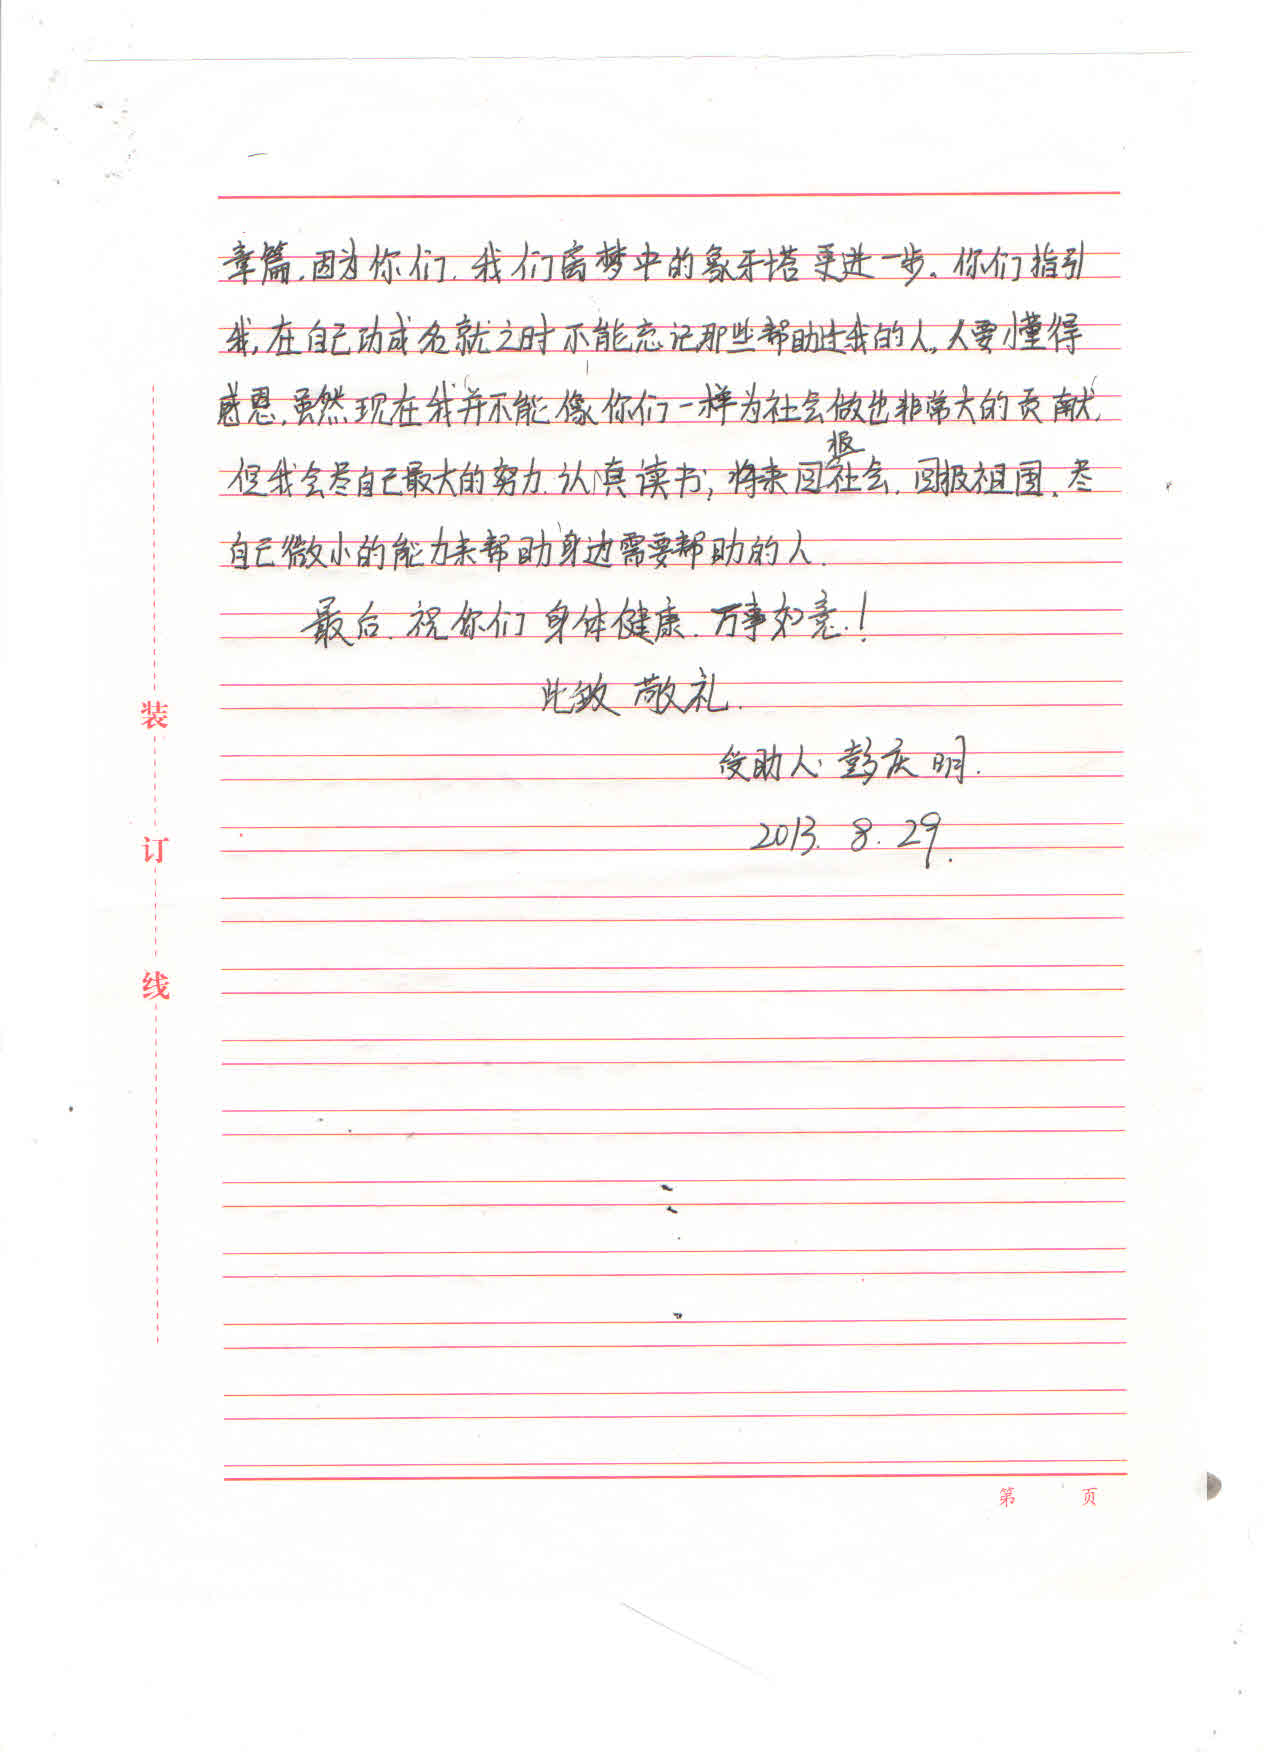 章篇,因为你们,我们离梦中的象牙塔更进一步。你们指引
我,在自己功成名就之时不能忘记那些帮助过我的人,人要懂得
感恩,虽然现在我并不能像你们一样为社会做出非常大的贡献,
但我会尽自己最大的努力,认真读书;将来回报社会,回报祖国,尽
自己微小的能力来帮助身边需要帮助的人.
最后,祝你们身体健康,万事如意!
此致 敬礼.
受助人:彭庆明.
2013.8.29.
装
订
线
第 页